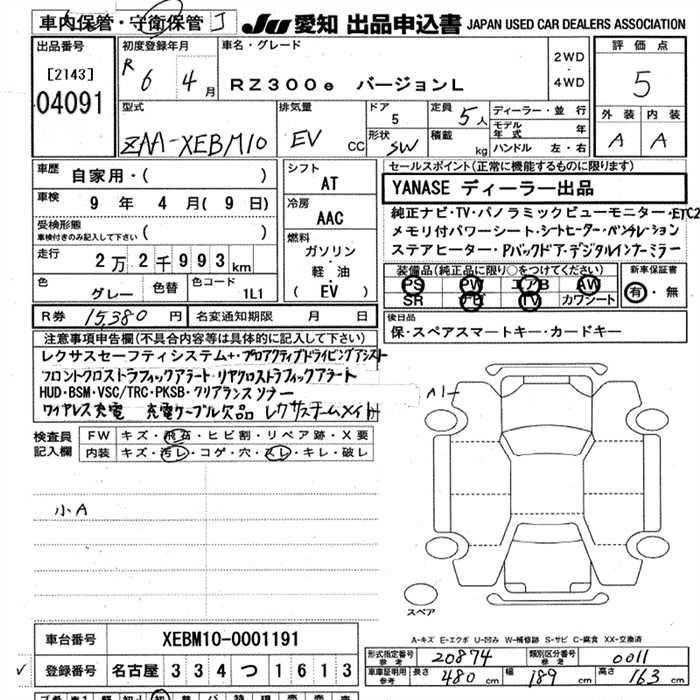 車内保管・守衛保管 J
JU 愛知 出品申込書 JAPAN USED CAR DEALERS ASSOCIATION
出品番号
[2143]
04091
初度登録年月
R6 4月
車名・グレード
RZ300e バージョンL
2WD
・
4WD
評価点
5
外装 内装
A A
型式
ZAA-XEBM10
排気量
EV CC
ドア
5
形状
SW
定員
5人
積載
kg
ディーラー・並行
モデル年式 年
ハンドル 左・右
車歴
自家用・( )
車検
9年4月(9日)
受検形態
車検付きのみ記入して下さい ( )
走行
2万2千993km
色
グレー
色替
色コード
1L1
シフト
AT
冷房
AAC
燃料
ガソリン・軽油
(EV)
セールスポイント(正常に機能するものに限ります)
YANASE ディーラー出品
純正ナビ・TV・パノラミックビューモニター・ETC2
メモリ付パワーシート・シートヒーター・ベンチレーション
ステアヒーター・Pバックドア・デジタルインナーミラー
装備品(純正品に限り○をつけてください)
PS PW エアB AW
SR ナビ TV カワシート
新車保証書
有・無
R券 15,380円 名変通知期限 月 日
後日品
保・スペアスマートキー・カードキー
注意事項申告欄(不具合内容等は具体的に記入して下さい)
レクサスセーフティシステム+・プロアクティブドライビングアシスト
フロントクロストラフィックアラート・リヤクロストラフィックアラート
HUD・BSM・VSC/TRC・PKSB・クリアランスソナー
ワイヤレス充電 充電ケーブル欠品 レクサスチームメイト
検査員記入欄
FW キズ・飛石・ヒビ割・リペア跡・X要
内装 キズ・汚レ・コゲ・穴・スレ・キレ・破レ
小A
スペア
A-キズ E-エクボ U-凹み W-補修跡 S-サビ C-腐食 XX-交換済
車台番号 XEBM10-0001191
登録番号 名古屋 334 つ 1613
型式指定番号 参考 20874 類別区分番号 参考 0011
車庫証明用 参考 長さ 480cm 幅 189cm 高さ 163cm